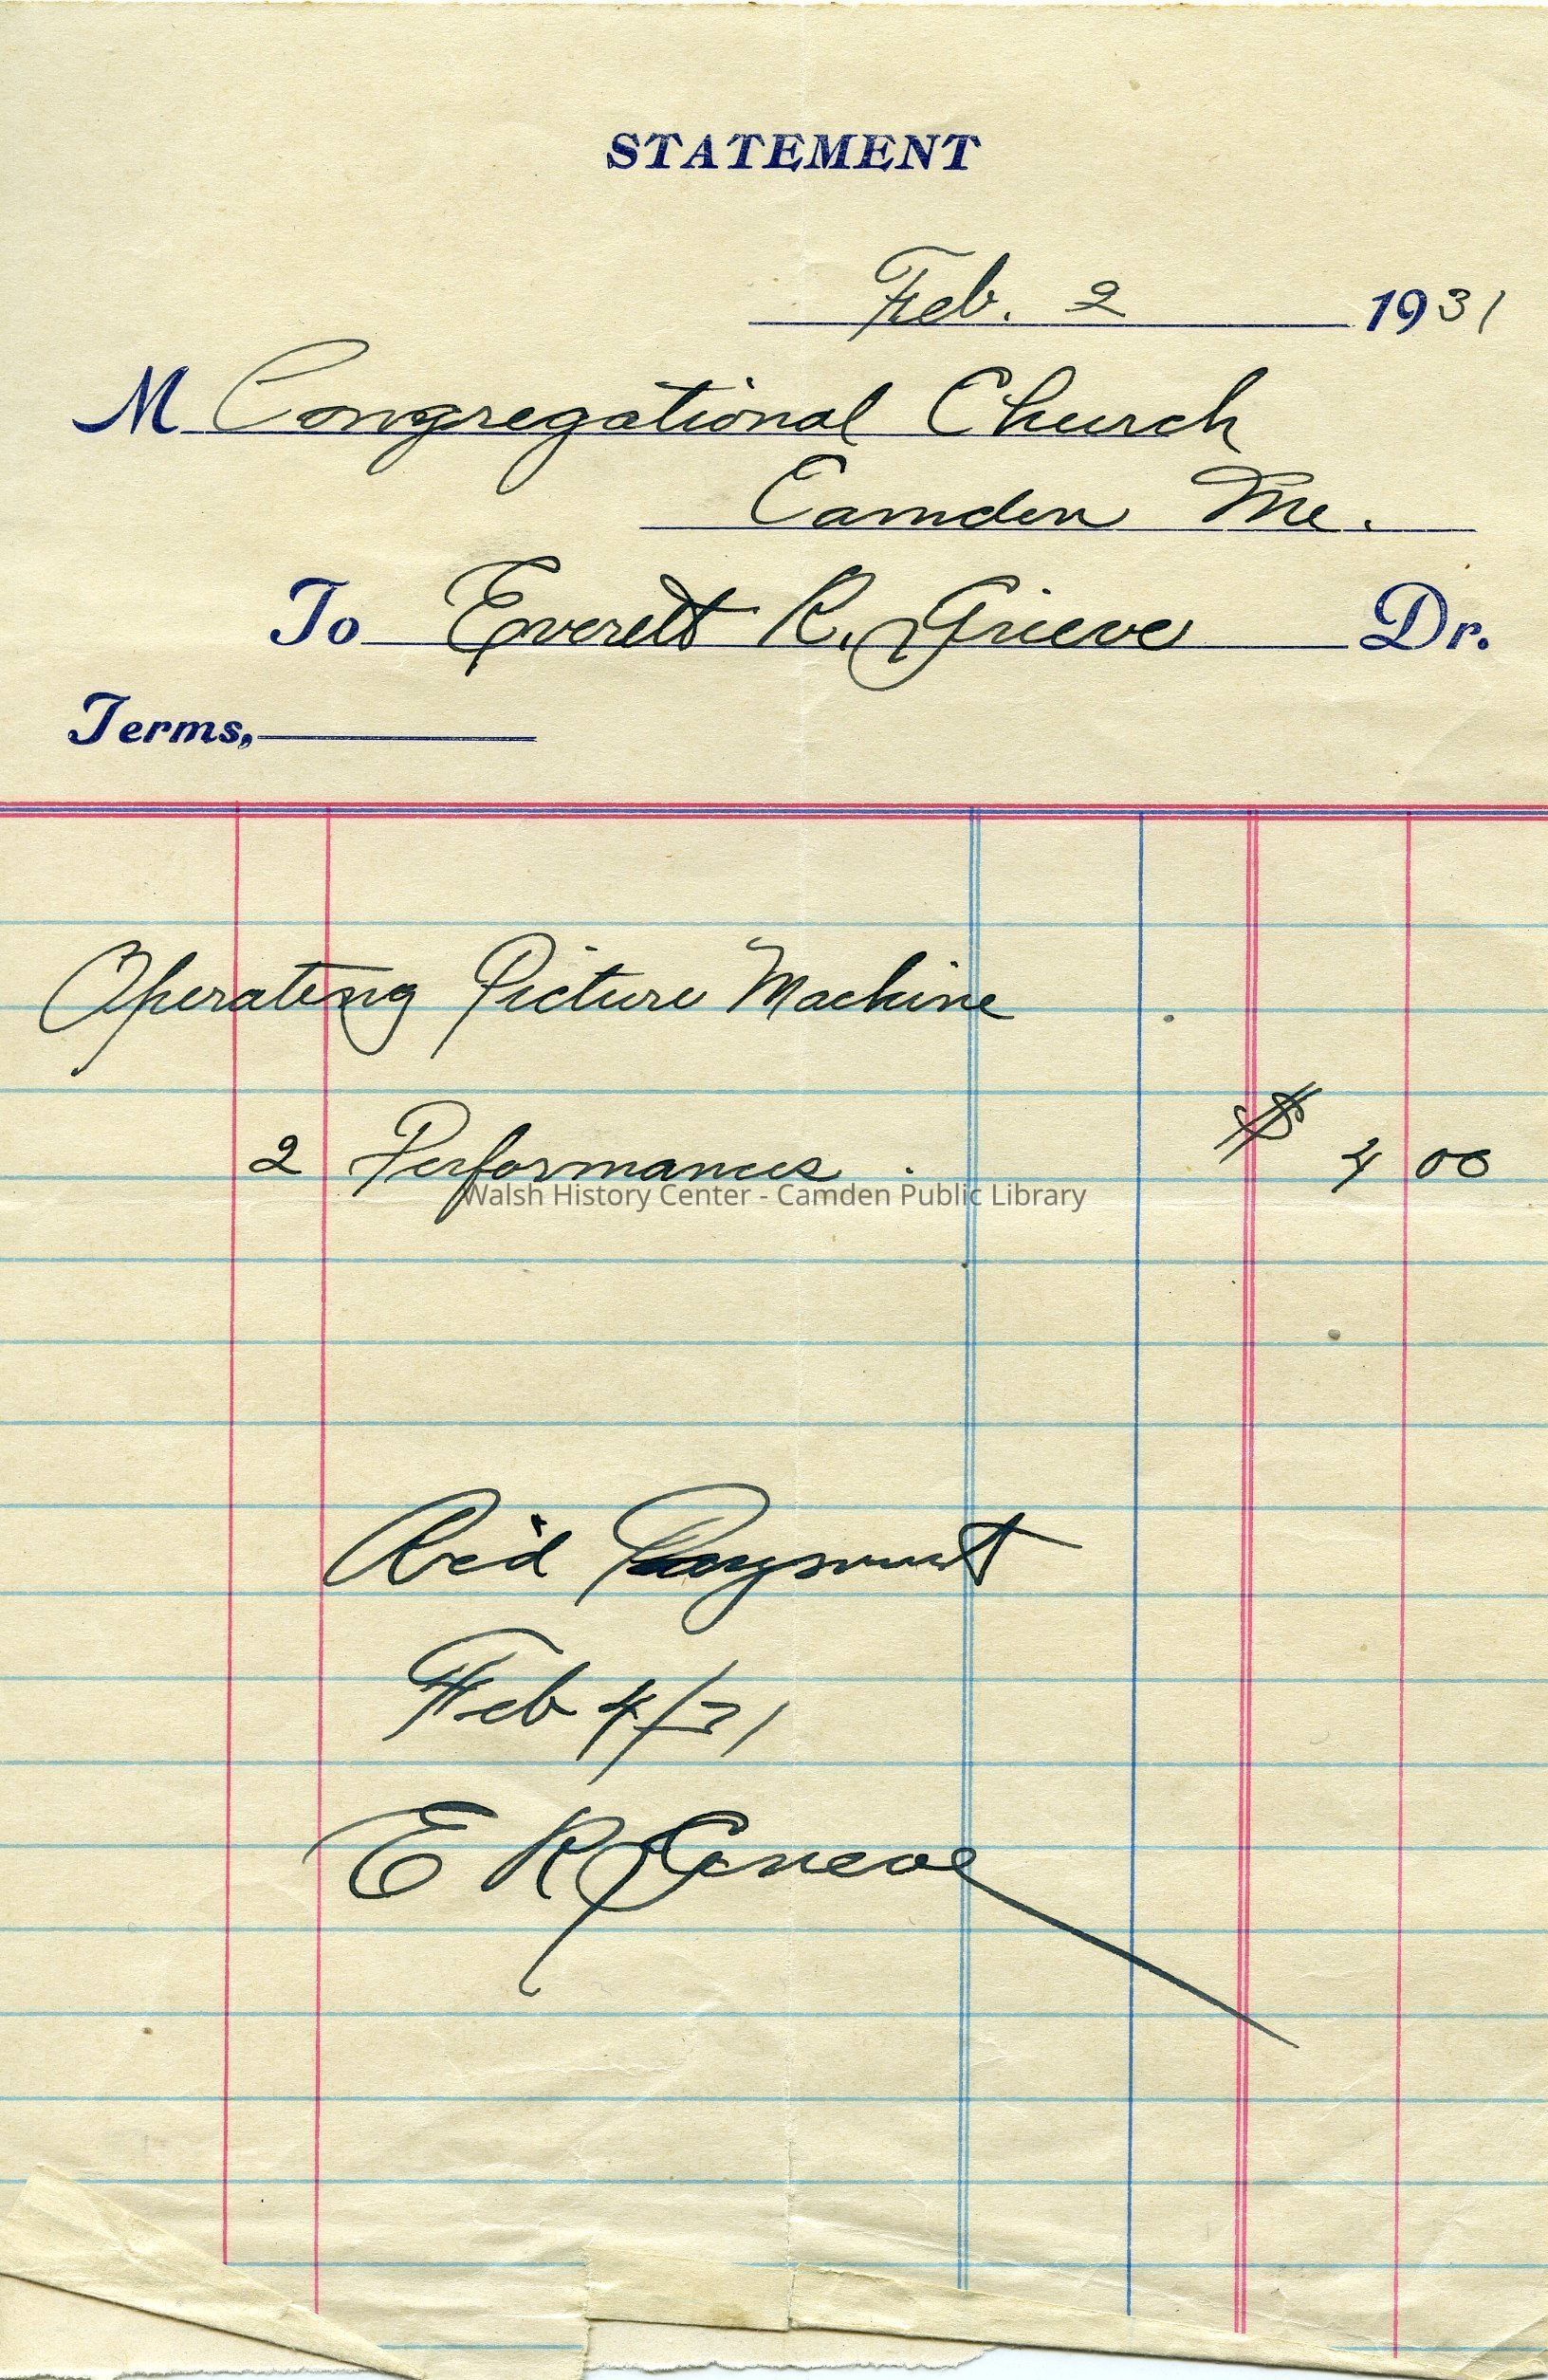 STATEMENT
Feb. 2 1931
M Congregational Church
Camden Me.
To Everett R. Grieve Dr.
Terms,
Operating Picture Machine
2 Performances . $ 4 00
Walsh History Center - Camden Public Library
Rec'd Payment
Feb 4/31
E R Grieve